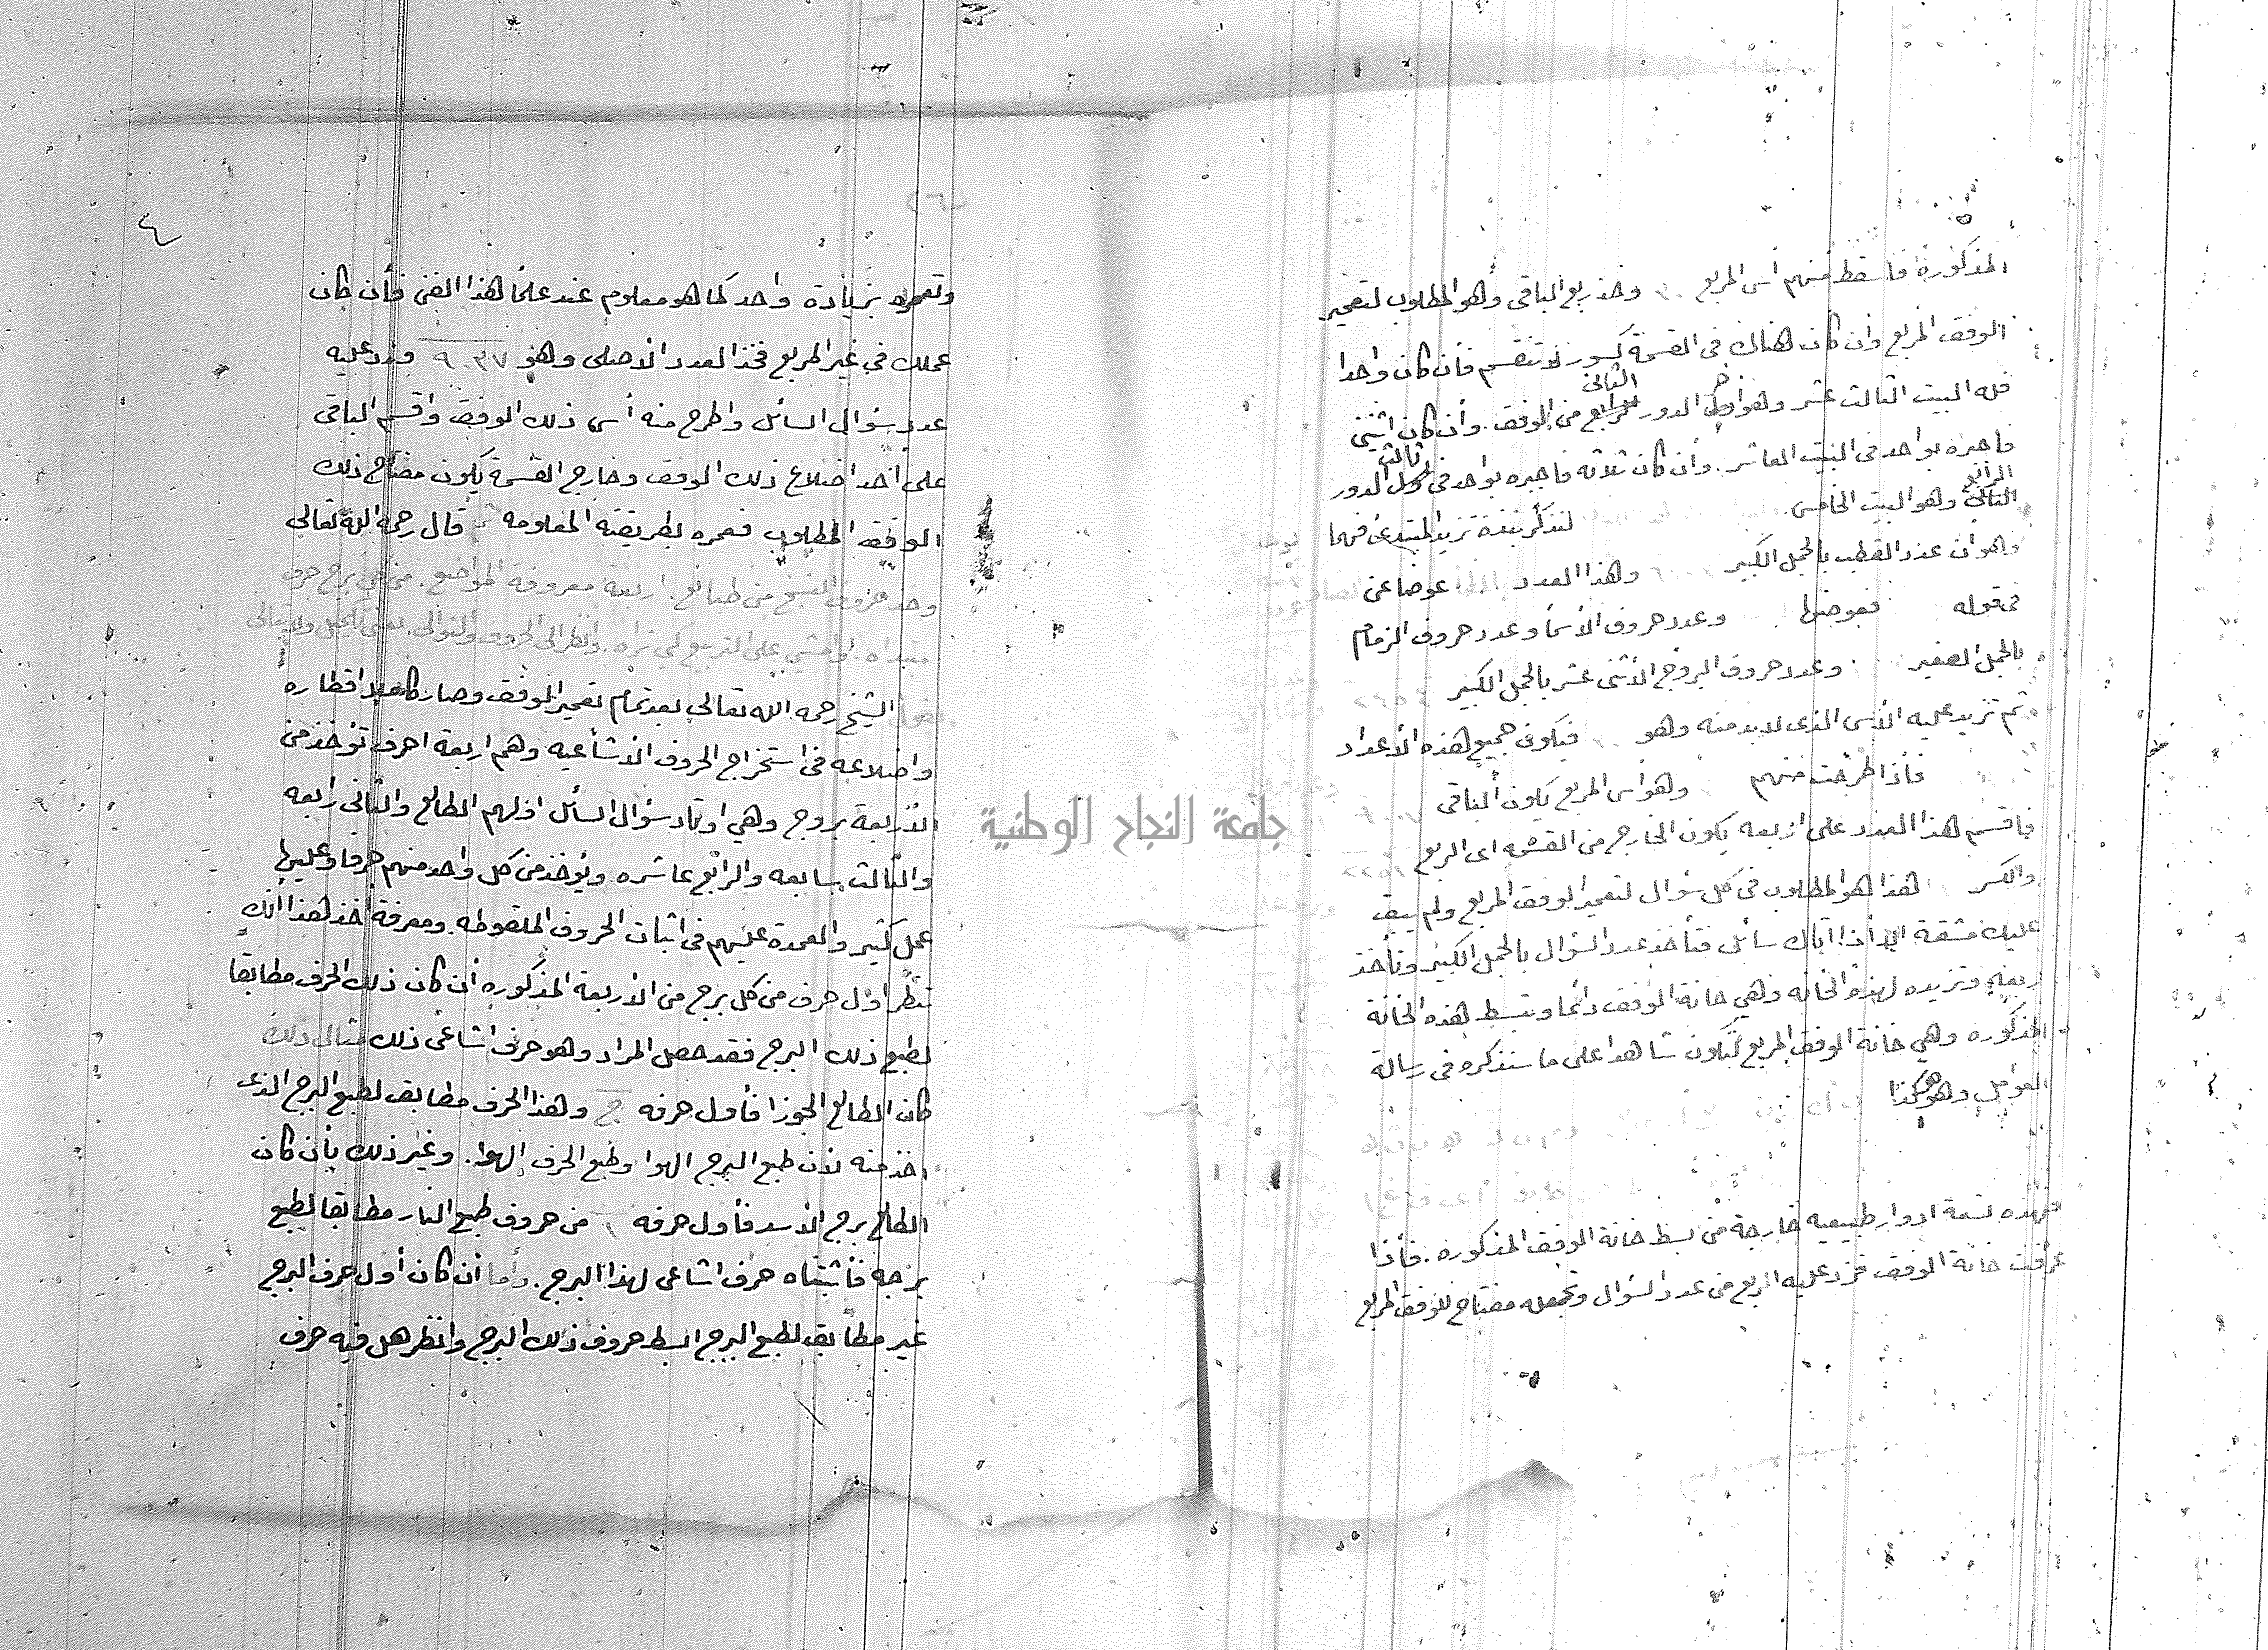 المذكورة فاسقط منهم أس المربع ٣٠ وخذ ربع الباقى وهو المطلوب لتعمير
الوفق المربع وان كان هناك فى القسمة كسور لو تنقسم فأن كان واحدا
فله البيت الثالث عشر وهو اول الدور الرابع من الوفق وأن كان اثنين
الثانى
فاجبره بواحد فى البيت العاشر وأن كان ثلاثه فاجبره بواحد فى اول الدور
ثالث
الرابع
الثانى وهو البيت الخامس لنذكر نبذة تزيد المبتدى فهما
وهو ان عدد القطب بالجمل الكبير وهذا العدد عوضا عن
فى قوله فعوضها وعدد حروف الأسما وعدد حروف الزمام
بالجمل الصغير وعدد حروف البروج الأثنى عشر بالجمل الكبير
ثم تزيد عليه الأس الذى لا بد منه وهو فيكون جميع هذه الأعداد
فأذا طرحت منهم وهو أس المربع يكون الباقى
فاقسم هذا العدد على اربعه يكون الخارج من القسمه اى الربع
والكسر هذا هو المطلوب فى كل سؤال لتعمير الوفق المربع ولم يبق
عليك مشقة الا أذا أتاك سائل فتأخذ عدد السؤال بالجمل الكبير وتأخذ
ربعه وتزيده لهذه الخانه وهي خانة الوفق دائما وتبسط هذه الخانة
المذكوره وهي خانة الوفق المربع لتكون شاهدا على ما سنذكره فى رسالة
وهو هكذا
فهذه تسعة ادوار طبيعيه خارجة من بسط خانة الوفق المذكوره. فأذا
عرفت خانة الوفق فزد عليه الربع من عدد السؤال وتجعله مفتاح للوفق المربع
٤
وتعمره بزيادة واحد كما هو معلوم عند علما هذا الفن فأن كان
عملك في غير المربع فخذ العدد الاصلى وهو ٩٠٣٧ وزد عليه
عدد سؤال السائل واطرح منه أس ذلك الوفق واقسم الباقى
على احد اضلاع ذلك الوفق وخارج القسمة يكون مفتاح ذلك
الوفق المطلوب فعمره بطريقته المعلومه قال رحمه الله تعالى
وخذ حروف من طبائع اربعة معروفة المواضع. من برج حرف
على التربيع كي تراه. وانظر الى الحروف والتوالى
الشيخ رحمه الله تعالى بعد تمام تعمير الوفق وصار كامل اقطاره
واضلاعه فى استخراج الحروف الاشاعيه وهم اربعة احرف تؤخذ من
الاربعة بروج وهي اوتاد سؤال السائل اولهم الطالع والثانى رابعه
والثالث سابعه والرابع عاشره ويؤخذ من كل واحد منهم حرفا وعليها
عمل كثير والعمدة عليهم فى اثبات الحروف الملقوطه ومعرفة أخذ هذا أنك
تنظر اول حرف من كل برج من الاربعة المذكوره أن كان ذلك الحرف مطابقا
لطبع ذلك البرج فقد حصل المراد وهو حرف اشاعى ذلك مثال ذلك
كان الطالع الجوزا فأول حرفه ج وهذا الحرف مطابق لطبع البرج الذى
اخذ منه لان طبع البرج الهوا وطبع الحرف الهوا. وغير ذلك بأن كان
الطالع برج الاسد فأول حرفه ا من حروف طبع النار مطابقا لطبع
برجه فأثبتاه حرف اشاعى لهذا البرج. وأما أن كان أول حرف البرج
غير مطابق لطبع البرج ابسط حروف ذلك البرج وانظر هل فيه حرف
جامعة النجاح الوطنية